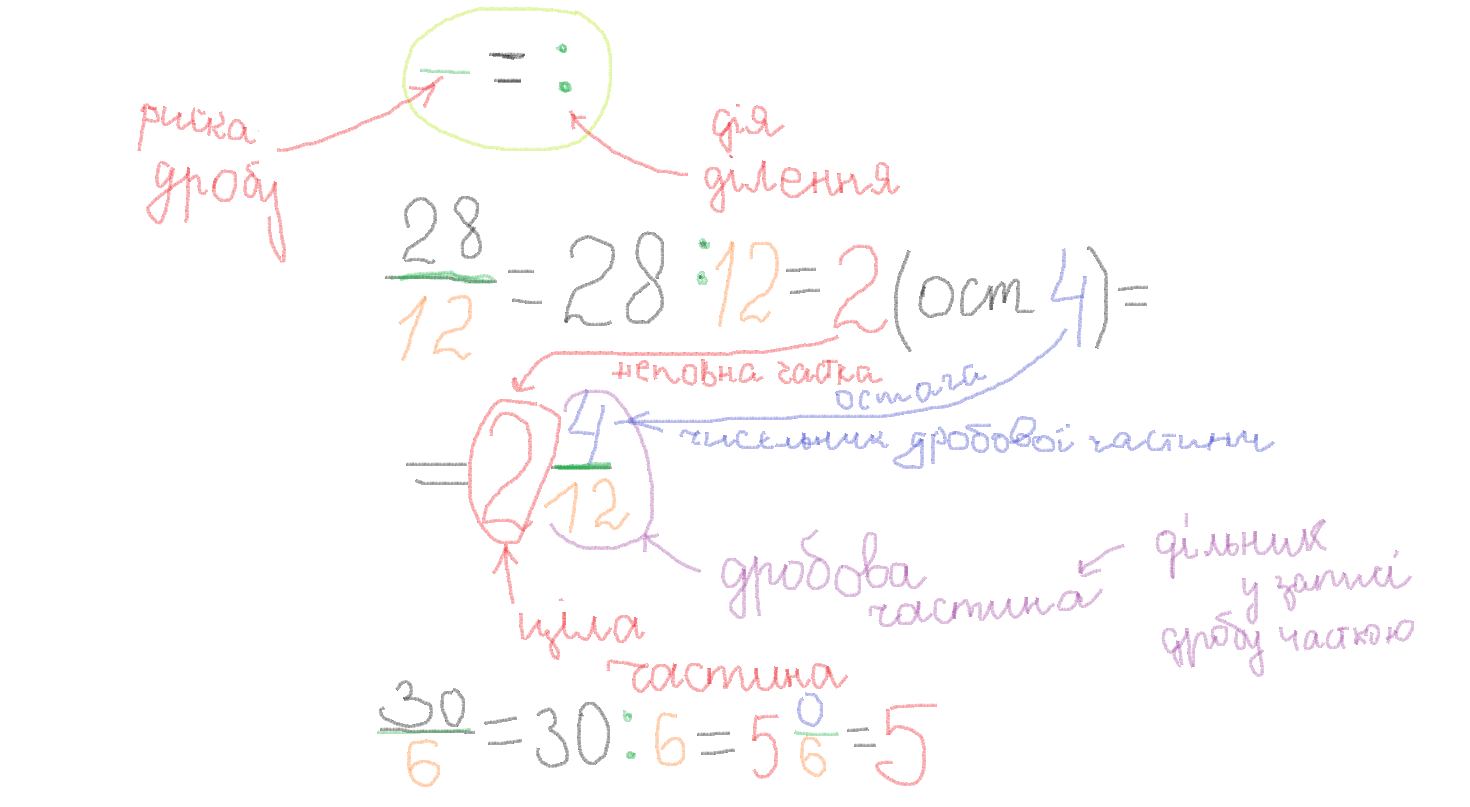 — = :
риска
дробу
дія
ділення
28/12 = 28 : 12 = 2 (ост 4) =
неповна частка
остача
= 2 4/12
чисельник дробової частини
дробова
частина
дільник
у записі
дробу часткою
ціла
частина
30/6 = 30 : 6 = 5 0/6 = 5